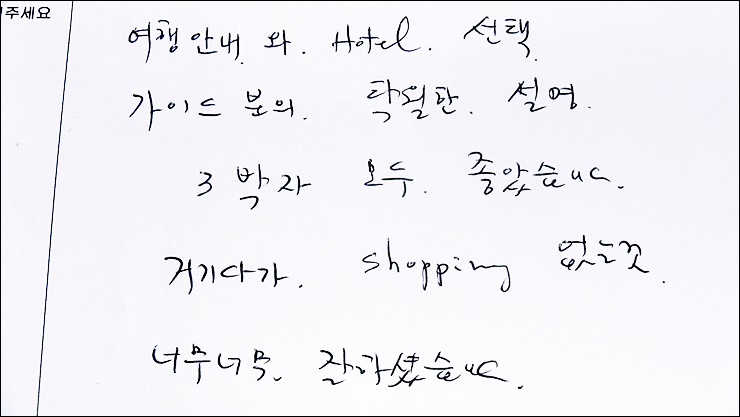 주세요
여행안내. 와. Hotel. 선택.
가이드 분의. 탁월한. 설명.
3 박자 모두. 좋았습니다.
거기다가. shopping 없는것.
너무너무. 잘하셨습니다.